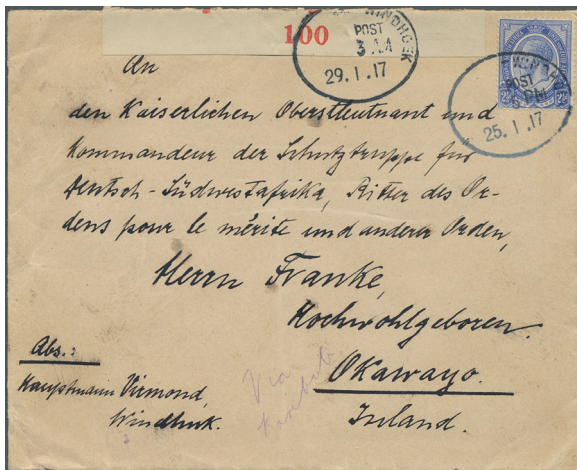 100
WINDHOEK
POST
29.1.17
POST
25.1.17
2½
An
den Kaiserlichen Oberstleutnant und
Kommandeur der Schutztruppe für
Deutsch-Südwestafrika, Ritter des Or-
dens pour le mérite und anderer Orden,
Herrn Franke,
Hochwohlgeboren.
Okawayo.
Inland.
Abs.:
Hauptmann Virmond,
Windhuk.
Via
Karibib